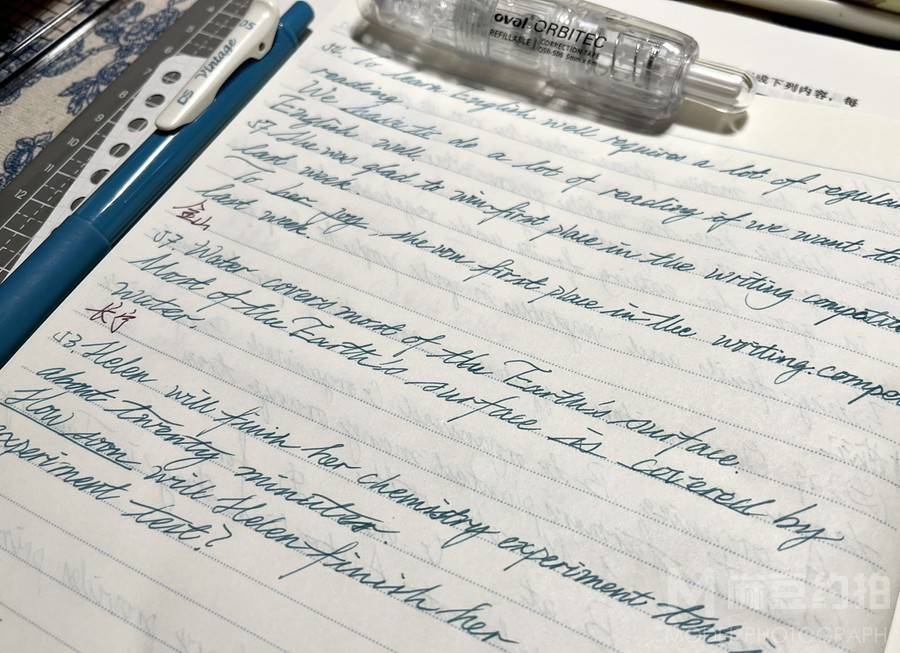 oval ORBITEC
REFILLABLE CORRECTION TAPE
成下列内容，每
DS Vintage 05
To learn English well requires a lot of regular
reading.
We have to do a lot of reading if we want to
English well.
57. She was glad to win first place in the writing competiti
last week.
To her joy she won first place in the writing compe
last week.
金山
57. Water covers most of the Earth's surface.
Most of the Earth's surface is covered by
water.
长宁
53. Helen will finish her chemistry experiment test
about twenty minutes.
How soon will Helen finish her
experiment test?